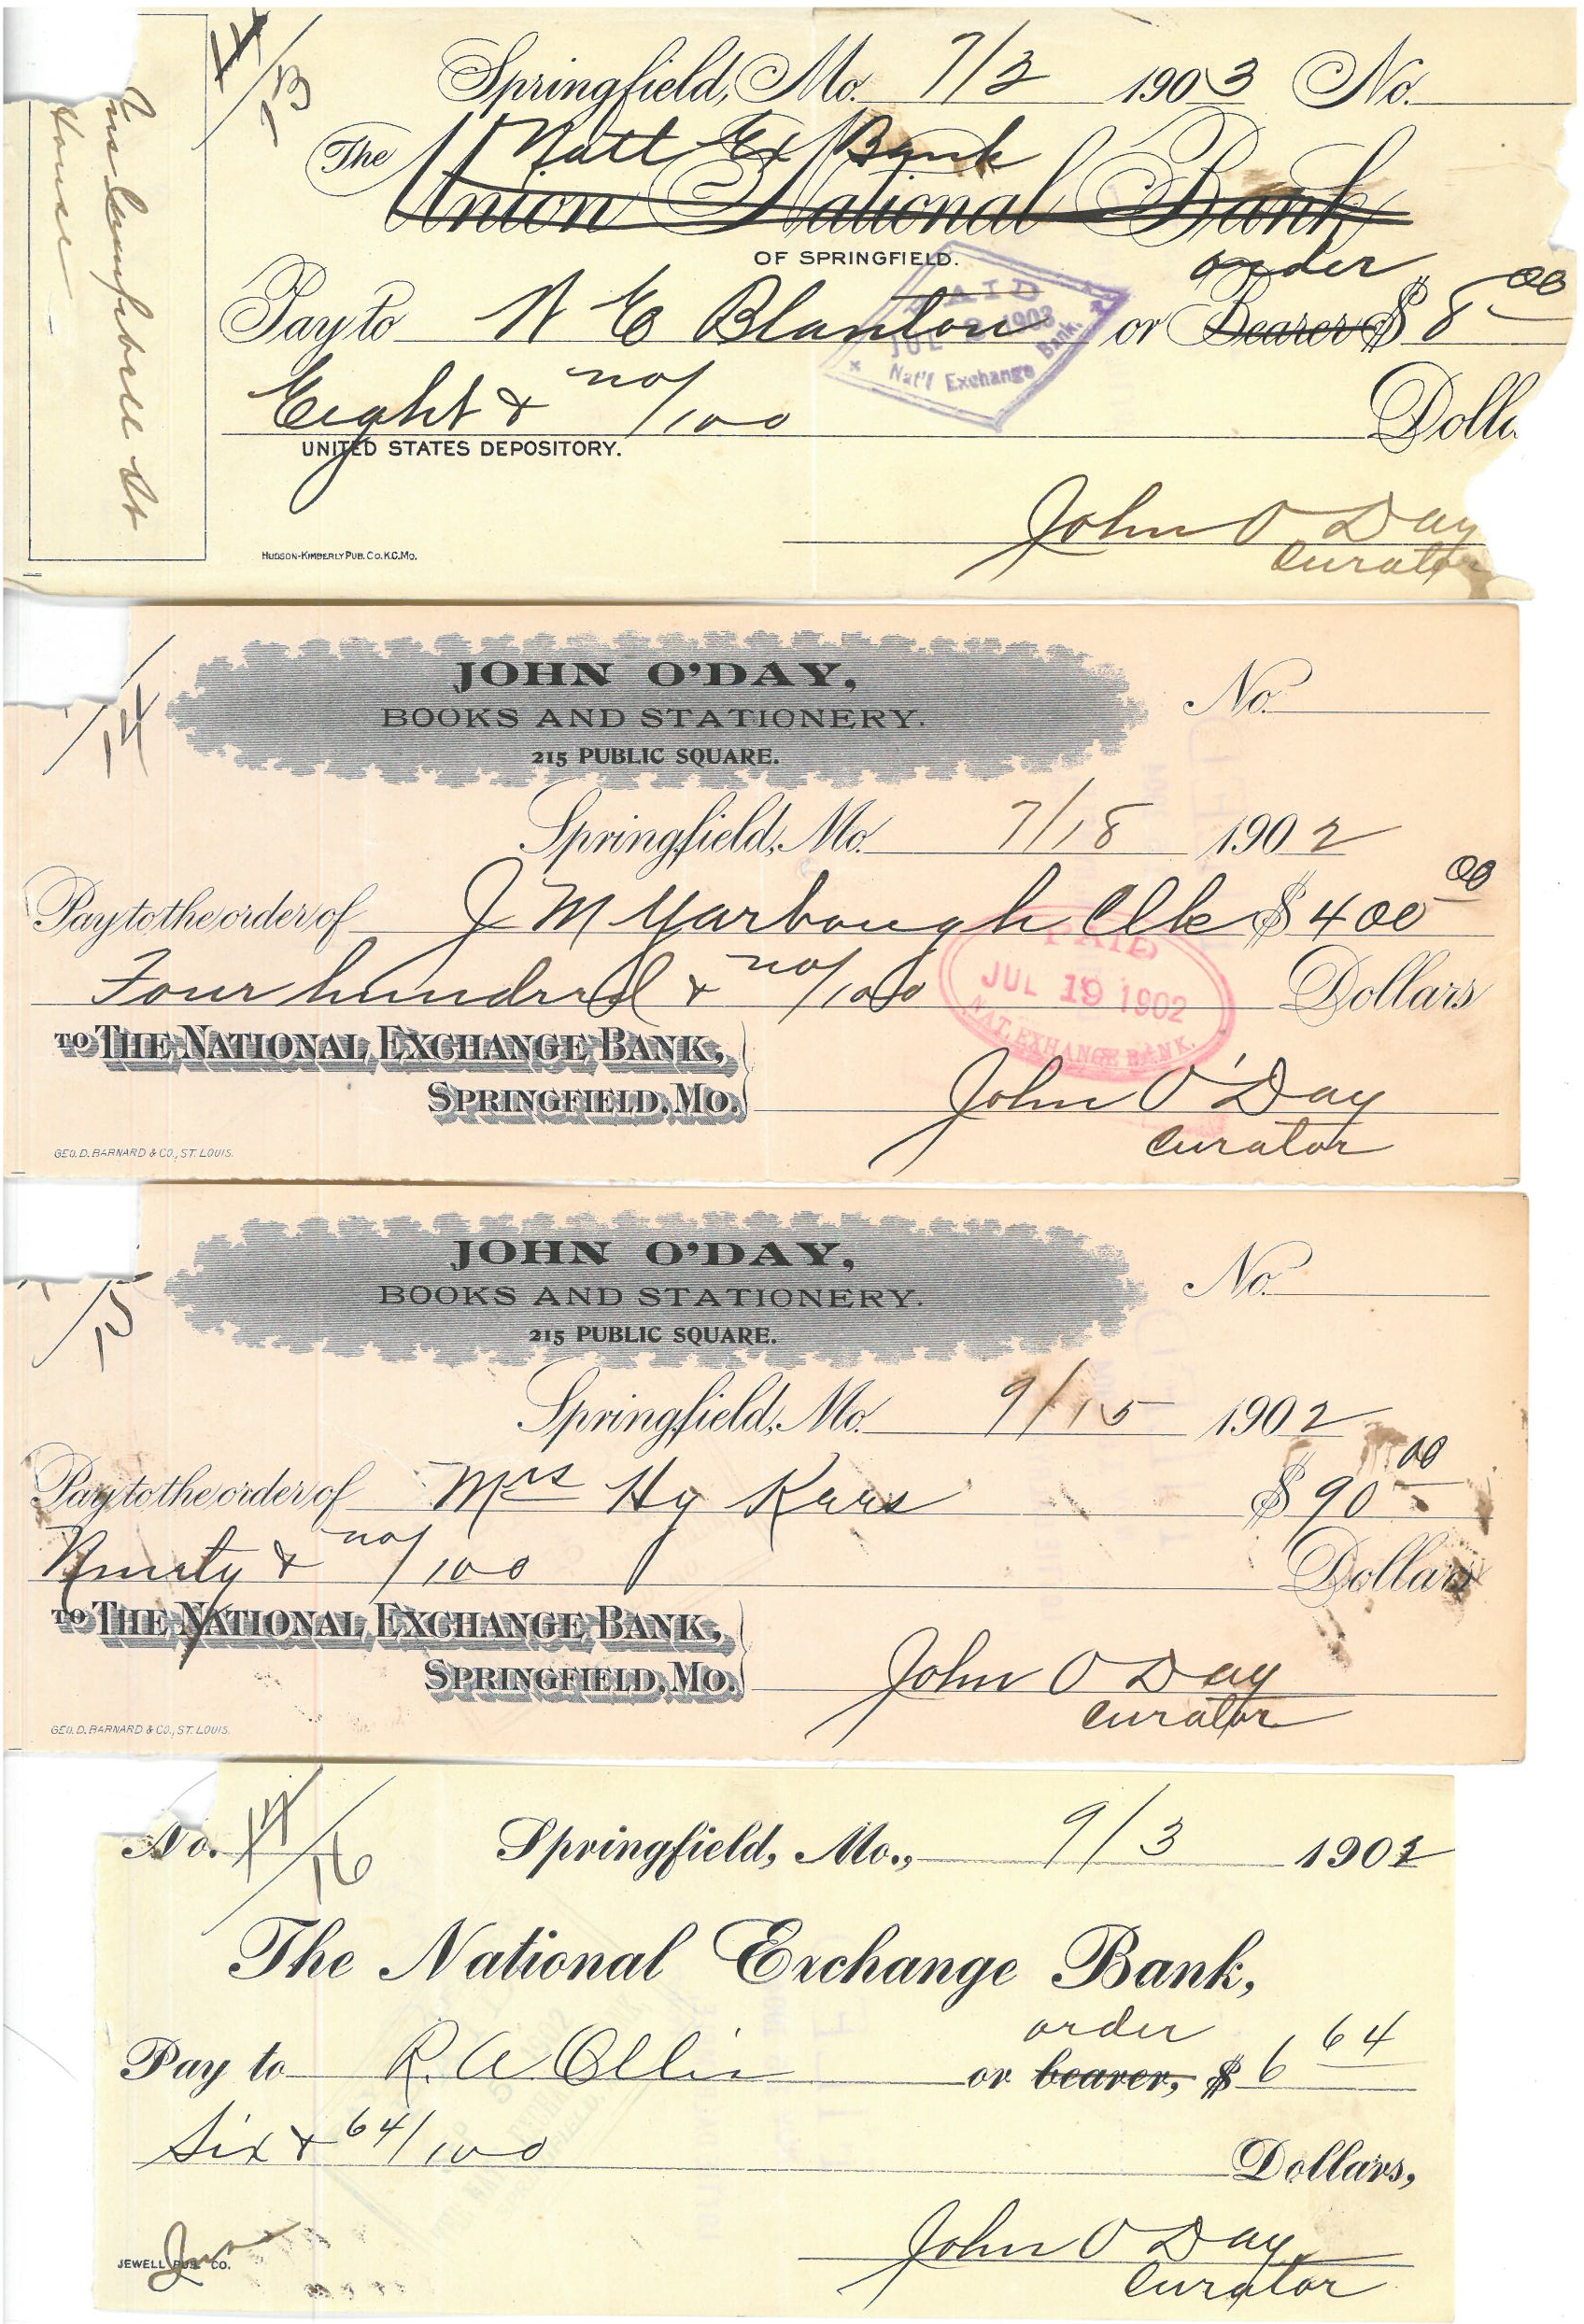 Springfield, Mo. 7/2 1903 No.
13
The Natl Ex Bank
Union National Bank
OF SPRINGFIELD.
order
Pay to N E Blanton or Bearer $ 8 00
PAID
JUL 2 1903
Nat'l Exchange Bank.
Eight & no/100
Doll
UNITED STATES DEPOSITORY.
John O Day
Curator
HUDSON-KIMBERLY PUB. CO. K.C. MO.
Ins Campbell St
House
14
JOHN O'DAY,
BOOKS AND STATIONERY.
215 PUBLIC SQUARE.
No.
Springfield, Mo. 7/18 1902
Pay to the order of J M Yarbough Clk $ 400 00
Four hundred & no/100 Dollars
PAID
JUL 19 1902
NAT. EXCHANGE BANK.
TO THE NATIONAL EXCHANGE BANK,
SPRINGFIELD, MO.
John O'Day
Curator
GEO. D. BARNARD & CO., ST. LOUIS.
15
JOHN O'DAY,
BOOKS AND STATIONERY.
215 PUBLIC SQUARE.
No.
Springfield, Mo. 9/15 1902
Pay to the order of Mrs Hy Kurs $ 90 00
Ninety & no/100 Dollars
TO THE NATIONAL EXCHANGE BANK,
SPRINGFIELD, MO.
John O Day
Curator
GEO. D. BARNARD & CO., ST. LOUIS.
No. 17 16 Springfield, Mo., 9/3 1902
The National Exchange Bank,
order
Pay to R. A. Ollis or bearer, $ 6 64
Six & 64/100
Dollars,
John O Day
Curator
JEWELL PUB. CO.
Ins